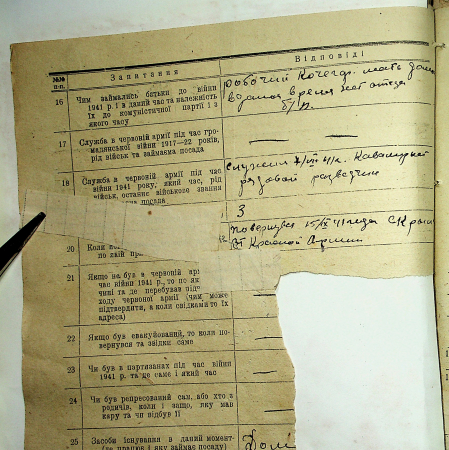 №№ п-п.
Запитання
Відповіді
16
Чим займались батьки до війни
1941 р. і в даний час та належність
їх до комуністичної партії і з
якого часу
робочий Кочегар. мать дома
в данное время нет отца
б/п.
17
Служба в червоній армії під час гро-
мадянської війни 1917—22 років,
рід військ та займаєма посада
— —
18
Служба в червоній армії під час
війни 1941 року, який час, рід
військ, останнє військове звання
посада
Служил
рядовой разведчик
3
20
Коли
по
15/IX 41 года с
Красной Армии
21
Якщо не був в червоній ар
час війни 1941 р., то по як
чині та де перебував під
ходу червоної армії (чим може
підтвердити, а коли свідками то їх
адреса)
—
22
Якщо був евакуйований, то коли по-
вернувся та звідки саме
—
23
Чи був в партизанах під час війни
1941 р. та де саме і який час
—
24
Чи був репресований сам, або хто з
родичів, коли і защо, яку мав
кару та чи відбув її
—
25
Засоби існування в даний момент
(де працює і яку займає посаду)
Дом